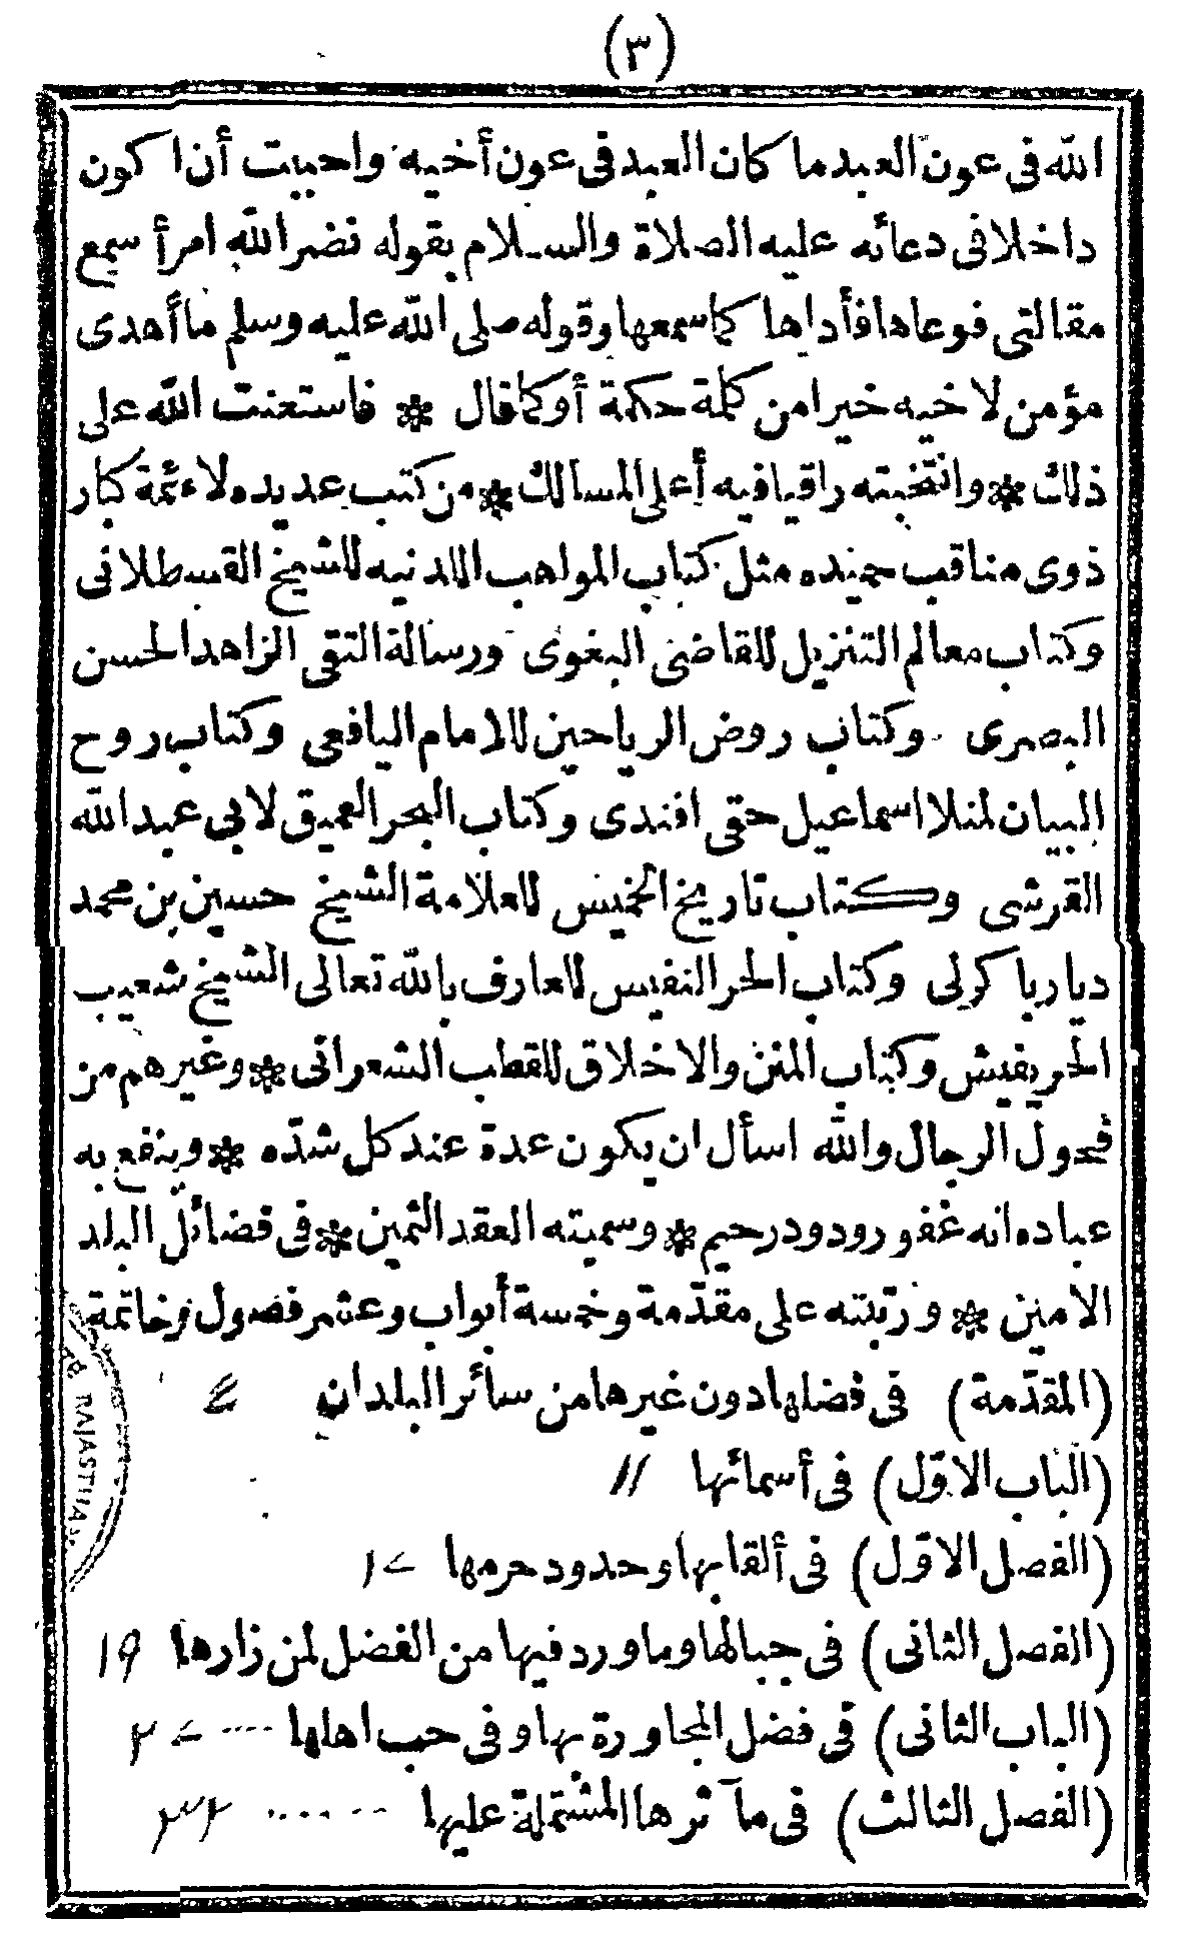 (٣)
الله فى عون العبد ما كان العبد فى عون أخيه واحببت أن اكون
داخلا فى دعائه عليه الصلاة والسلام بقوله نضر الله امرأ سمع
مقالتى فوعاها فأداها كما سمعها وقوله صلى الله عليه وسلم ما أهدى
مؤمن لاخيه خيرا من كلمة حكمة أو كما قال ❊ فاستعنت الله على
ذلك ❊ وانتخبته راقيا فيه أعلى المسالك ❊ من كتب عديده لاءئمة كبار
ذوى مناقب حميده مثل كتاب المواهب اللدنيه للشيخ القسطلانى
وكتاب معالم التنزيل للقاضى البغوى ورسالة التقى الزاهد الحسن
البصرى وكتاب روض الرياحين للامام اليافعى وكتاب روح
البيان لمنلا اسماعيل حقى افندى وكتاب البحر العميق لابى عبد الله
القرشى وكتاب تاريخ الخميس للعلامة الشيخ حسين بن محمد
ديار باكرلى وكتاب الحر النفيس للعارف بالله تعالى الشيخ شعيب
الحريفيش وكتاب المنن والاخلاق للقطب الشعرانى ❊ وغيرهم من
فحول الرجال والله اسأل ان يكون عدة عند كل شدّه ❊ وينفع به
عباده انه غفور ودود رحيم ❊ وسميته العقد الثمين ❊ فى فضائل البلد
الامين ❊ ورتبته على مقدّمة وخمسة أبواب وعشر فصول وخاتمة
(المقدّمة) فى فضلها دون غيرها من سائر البلدان
(الباب الاوّل) فى أسمائها ١١
(الفصل الاوّل) فى ألقابها وحدود حرمها ١٢
(الفصل الثانى) فى جبالها وما ورد فيها من الفضل لمن زارها ١٩
(الباب الثانى) فى فضل المجاورة بها وفى حب اهلها
(الفصل الثالث) فى مآثرها المشتملة عليها ٣٢
RAJASTHAN